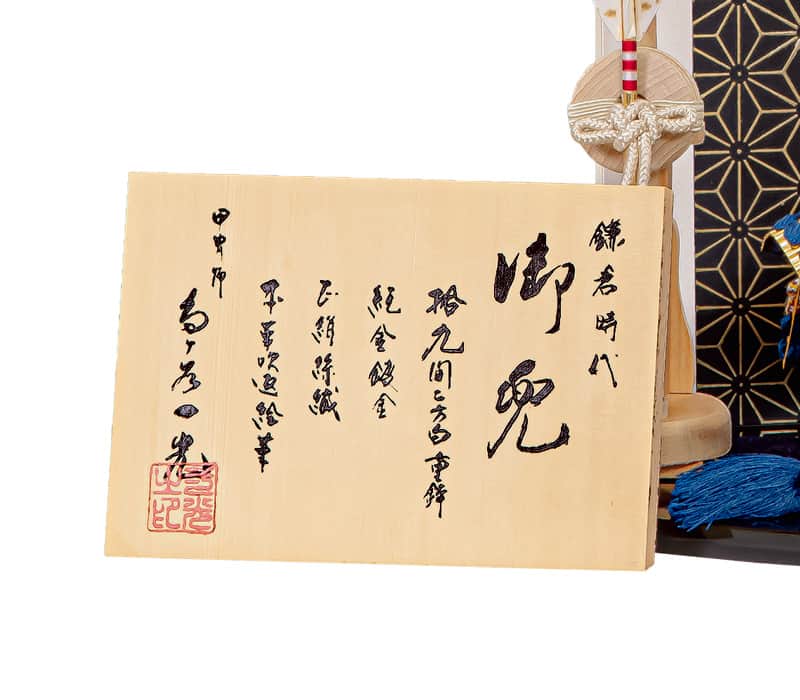 鎌倉時代
御兜
拾九間二方白重鉢
純金鍍金
正絹縅
本革吹返絵革
甲冑師